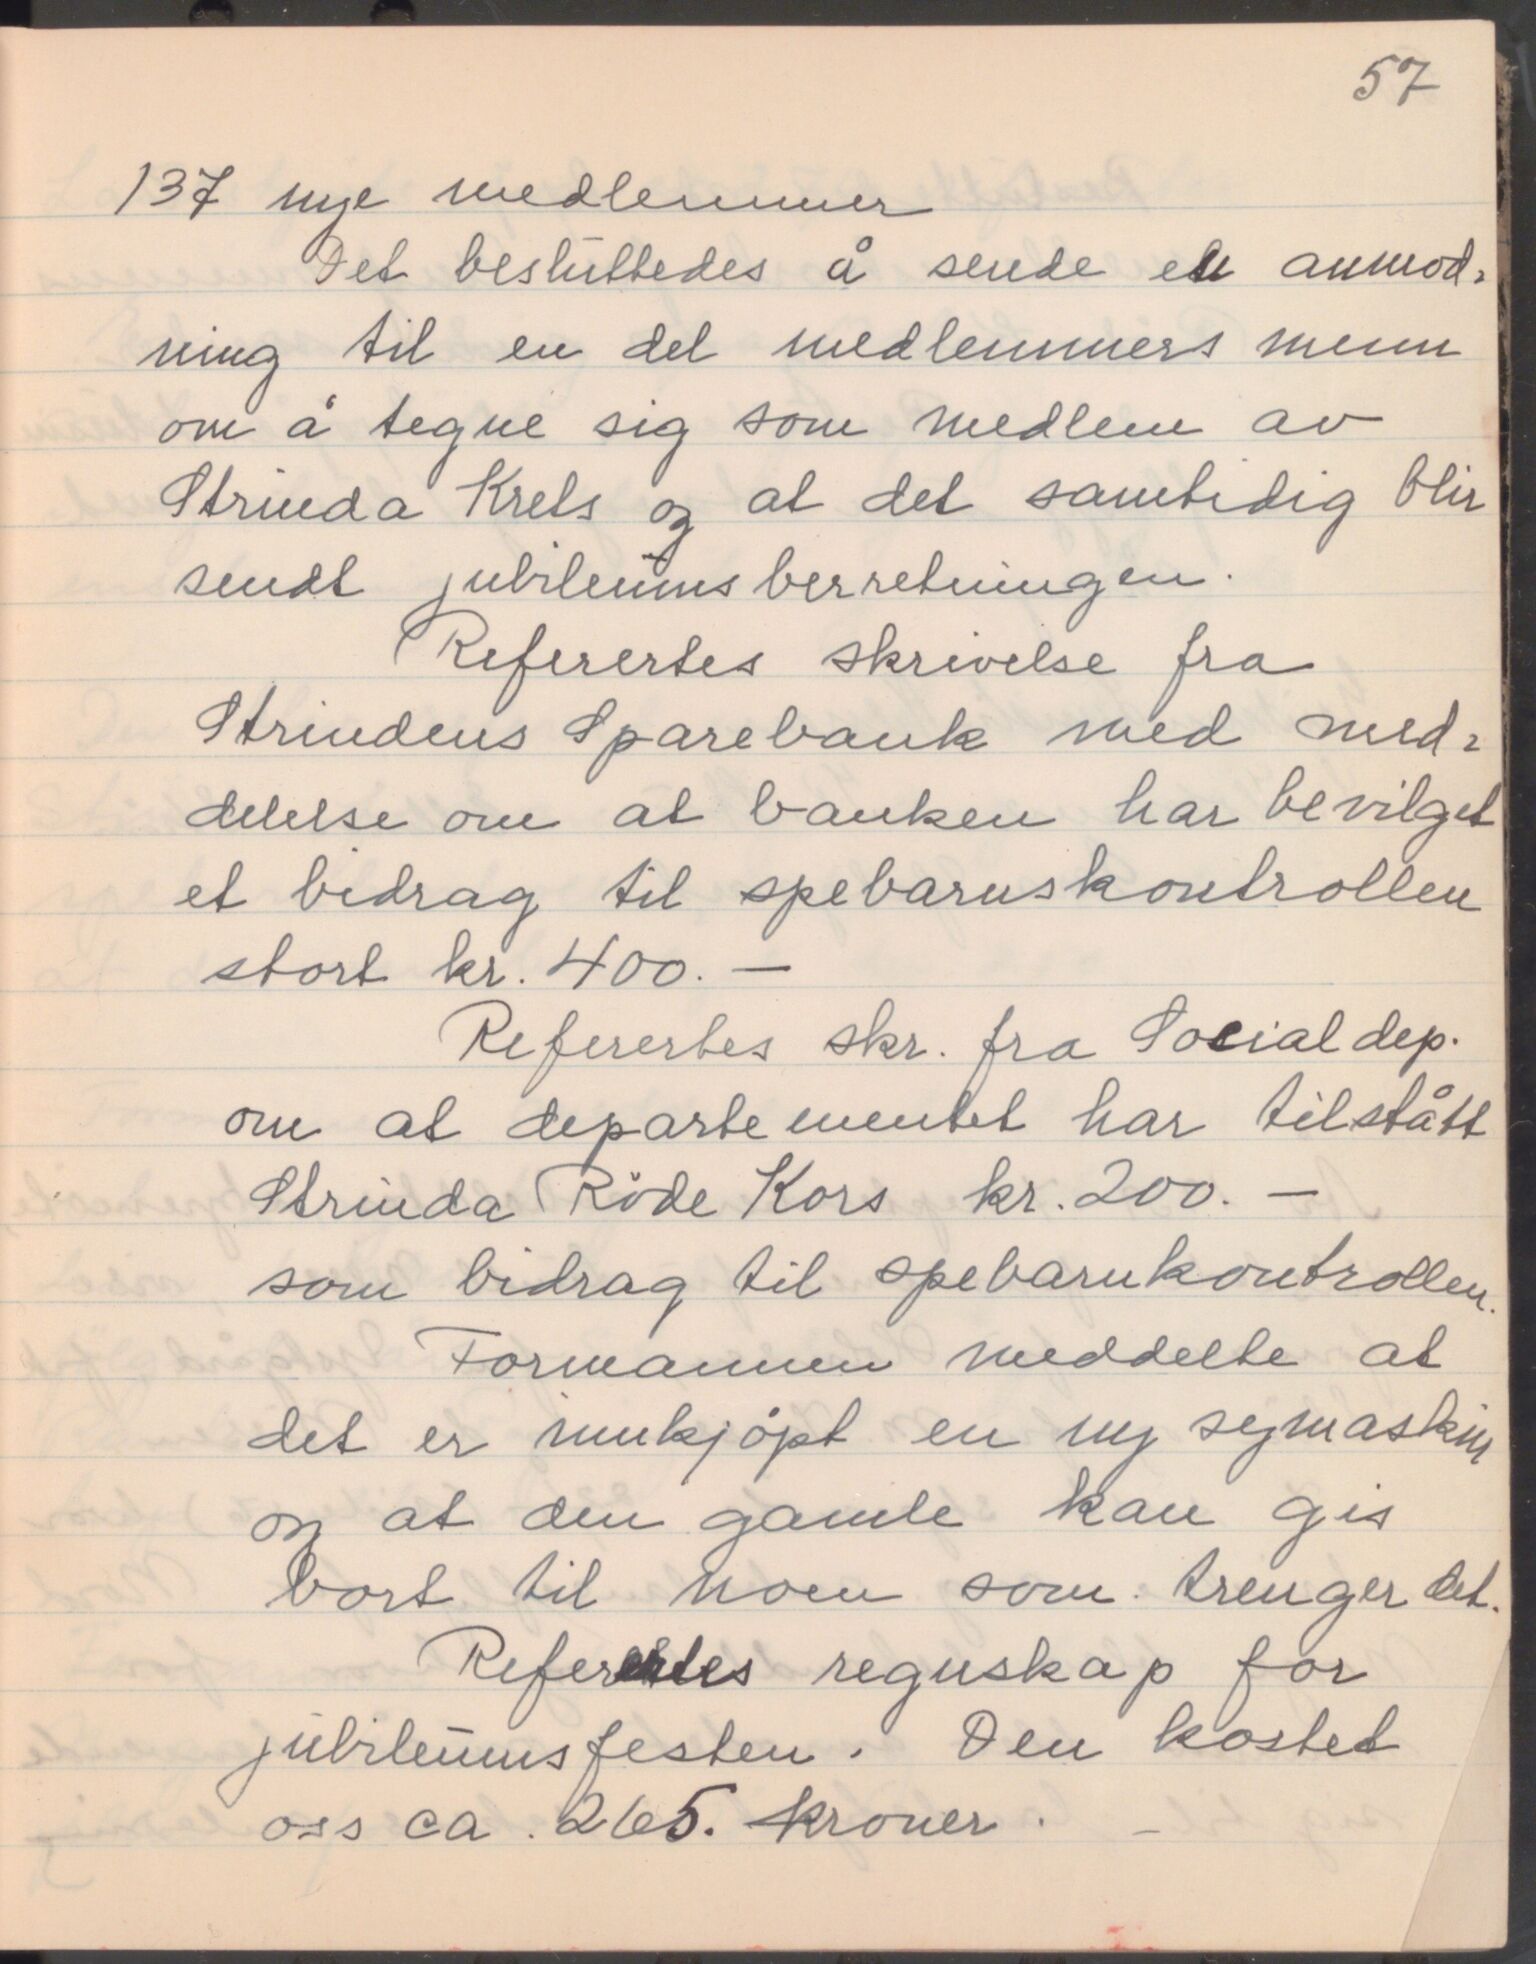 57
137 nye medlemmer
Det besluttedes å sende en anmod-
ning til en del medlemmers menn
om å tegne sig som medlem av
Strinda Krets og at det samtidig blir
sendt jubileumsberretningen.
Referertes skrivelse fra
Strindens Sparebank med med-
delelse om at banken har bevilget
et bidrag til spebarnskontrollen
stort kr. 400. —
Referertes skr. fra Socialdep.
om at departementet har tilstått
Strinda Röde Kors kr. 200. —
som bidrag til spebarnkontrollen.
Formannen meddelte at
det er innkjöpt en ny symaskin
og at den gamle kan gis
bort til noen som trenger det.
Referertes regnskap for
jubileumsfesten. Den kostet
oss ca. 265. kroner. —